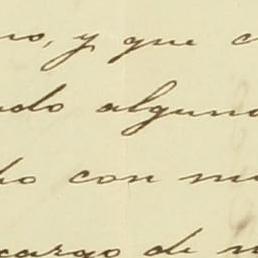 no, y que c
do alguno
ho con m
cargo de n